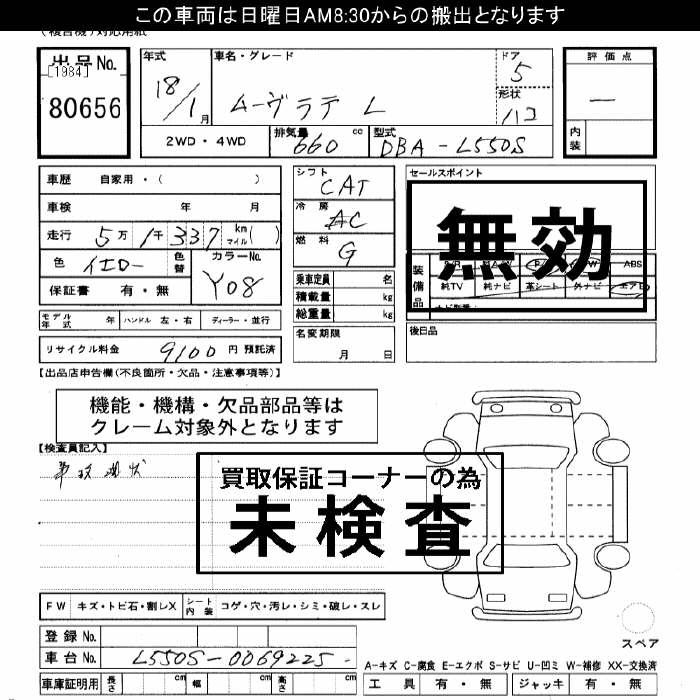 この車両は日曜日AM8:30からの搬出となります
(複合機)対応用紙
出品No. [1984] 80656
年式 18/1月
車名・グレード ムーヴラテ L
ドア 5
形状 ハコ
評価点 —
内装
2WD・4WD
排気量 660 cc
型式 DBA-L550S
車歴 自家用・( )
車検 年 月
走行 5万1千337 km マイル( )
色 イエロー 色替 カラーNo. Y08
保証書 有・無
モデル年式 年 ハンドル 左・右 ディーラー・並行
リサイクル料金 9100 円 預託済
シフト CAT
冷房 AC
燃料 G
乗車定員 名
積載量 kg
総重量 kg
名変期限 月 日
セールスポイント
無効
装備品 ABS
純TV 純ナビ 革シート 外ナビ エアB
後日品
【出品店申告欄(不良箇所・欠品・注意事項等)】
機能・機構・欠品部品等は
クレーム対象外となります
【検査員記入】
買取保証コーナーの為
未検査
FW キズ・トビ石・割レX シート内装 コゲ・穴・汚レ・シミ・破レ・スレ
登録No.
車台No. L550S-0069225-
車庫証明用 長さ cm 幅 cm 高さ cm
スペア
A-キズ C-腐食 E-エクボ S-サビ U-凹ミ W-補修 XX-交換済
工具 有・無 ジャッキ 有・無